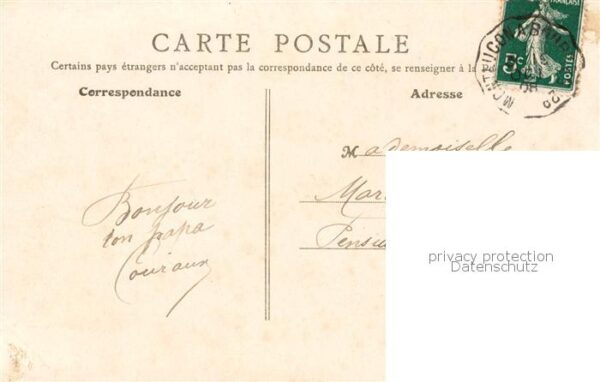 CARTE POSTALE
Certains pays étrangers n'acceptant pas la correspondance de ce côté, se renseigner à la
Correspondance
Adresse
Mademoiselle
Mar
Pensio
Bonjour
ton papa
privacy protection
Datenschutz